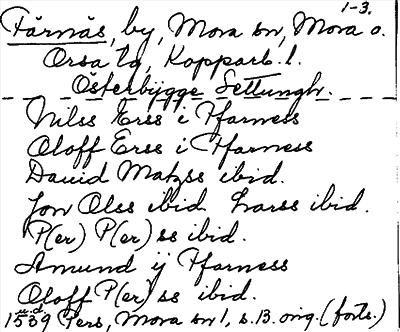 1-3.
Färnäs, by, Mora sn, Mora o.
Orsa tg, Kopparb. l.
Österbygge Settungh.
Nilss Erss i Ffarness
Oloff Erss i Ffarness
Dauid Matzss ibid.
Jon Olss ibid. Larss ibid.
P(er) P(er)ss ibid.
Amund ij Ffarness
Oloff P(er)ss ibid.
1539 Pers, Mora sn 1, s. 13. orig. (forts.)